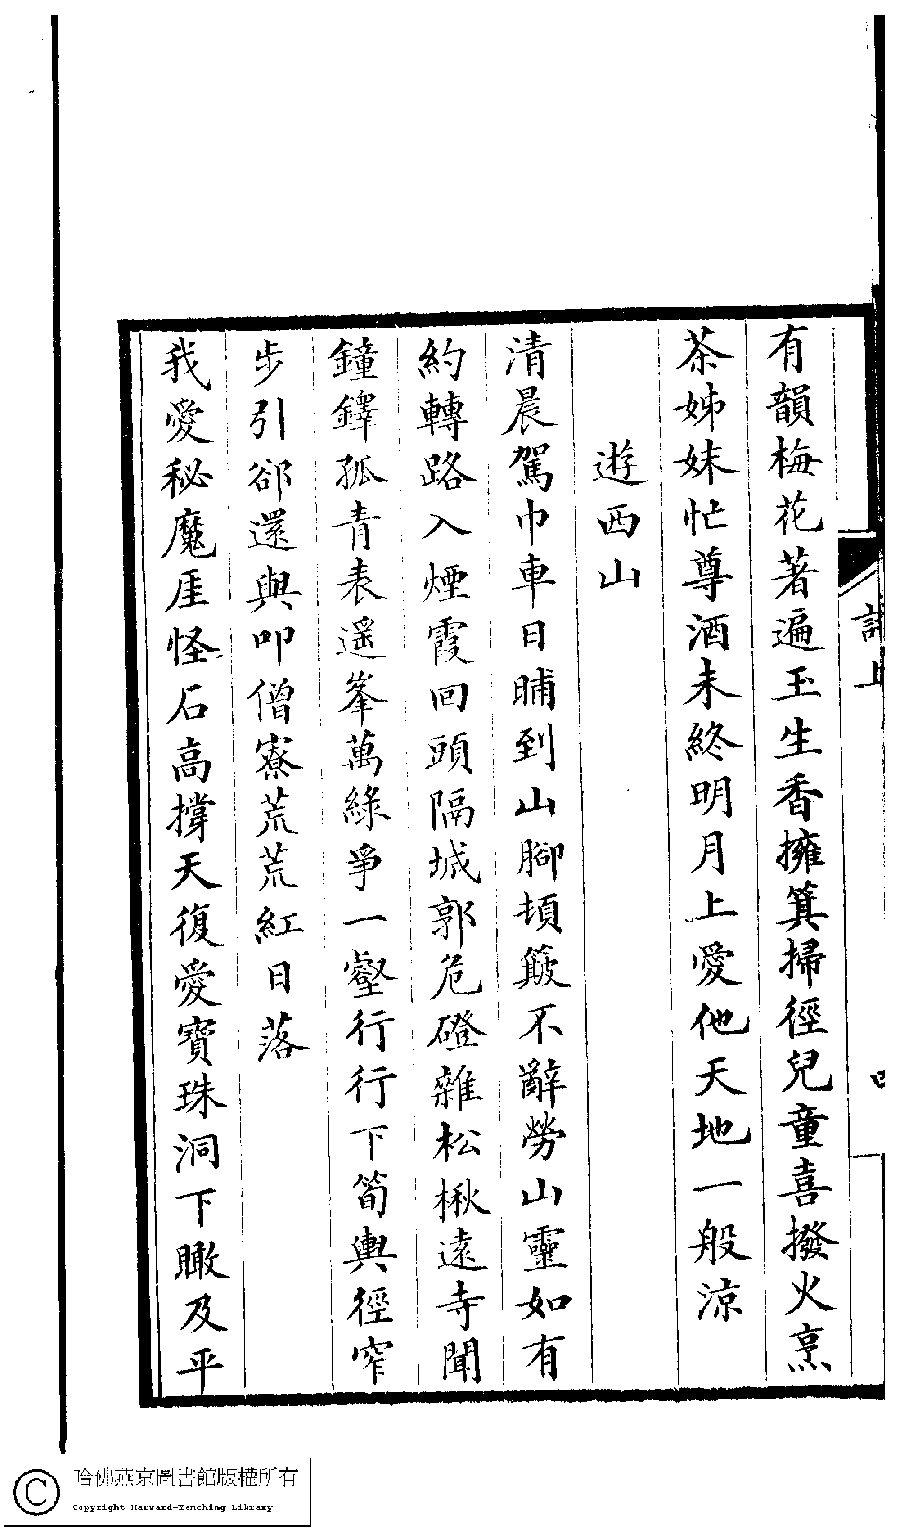 有韻梅花著遍玉生香擁箕掃徑兒童喜撥火烹
茶姊妹忙尊酒未終明月上愛他天地一般涼
遊西山
清晨駕巾車日晡到山腳頓簸不辭勞山靈如有
約轉路入煙霞回頭隔城郭危磴雜松楸遠寺聞
鐘鐸孤青表遥峯萬綠爭一壑行行下筍輿徑窄
步引郤還與叩僧寮荒荒紅日落
我愛秘魔厓怪石高撐天復愛寶珠洞下瞰及平
上
哈佛燕京圖書館版權所有
Copyright Harvard-Yenching Library